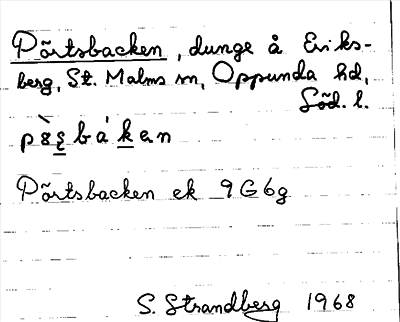 Põrtsbacken, dunge å Eriks-
berg, St. Malms sn, Oppunda hd,
Söd. l.
Põrtsbacken ek 9G6g
S. Strandberg 1968